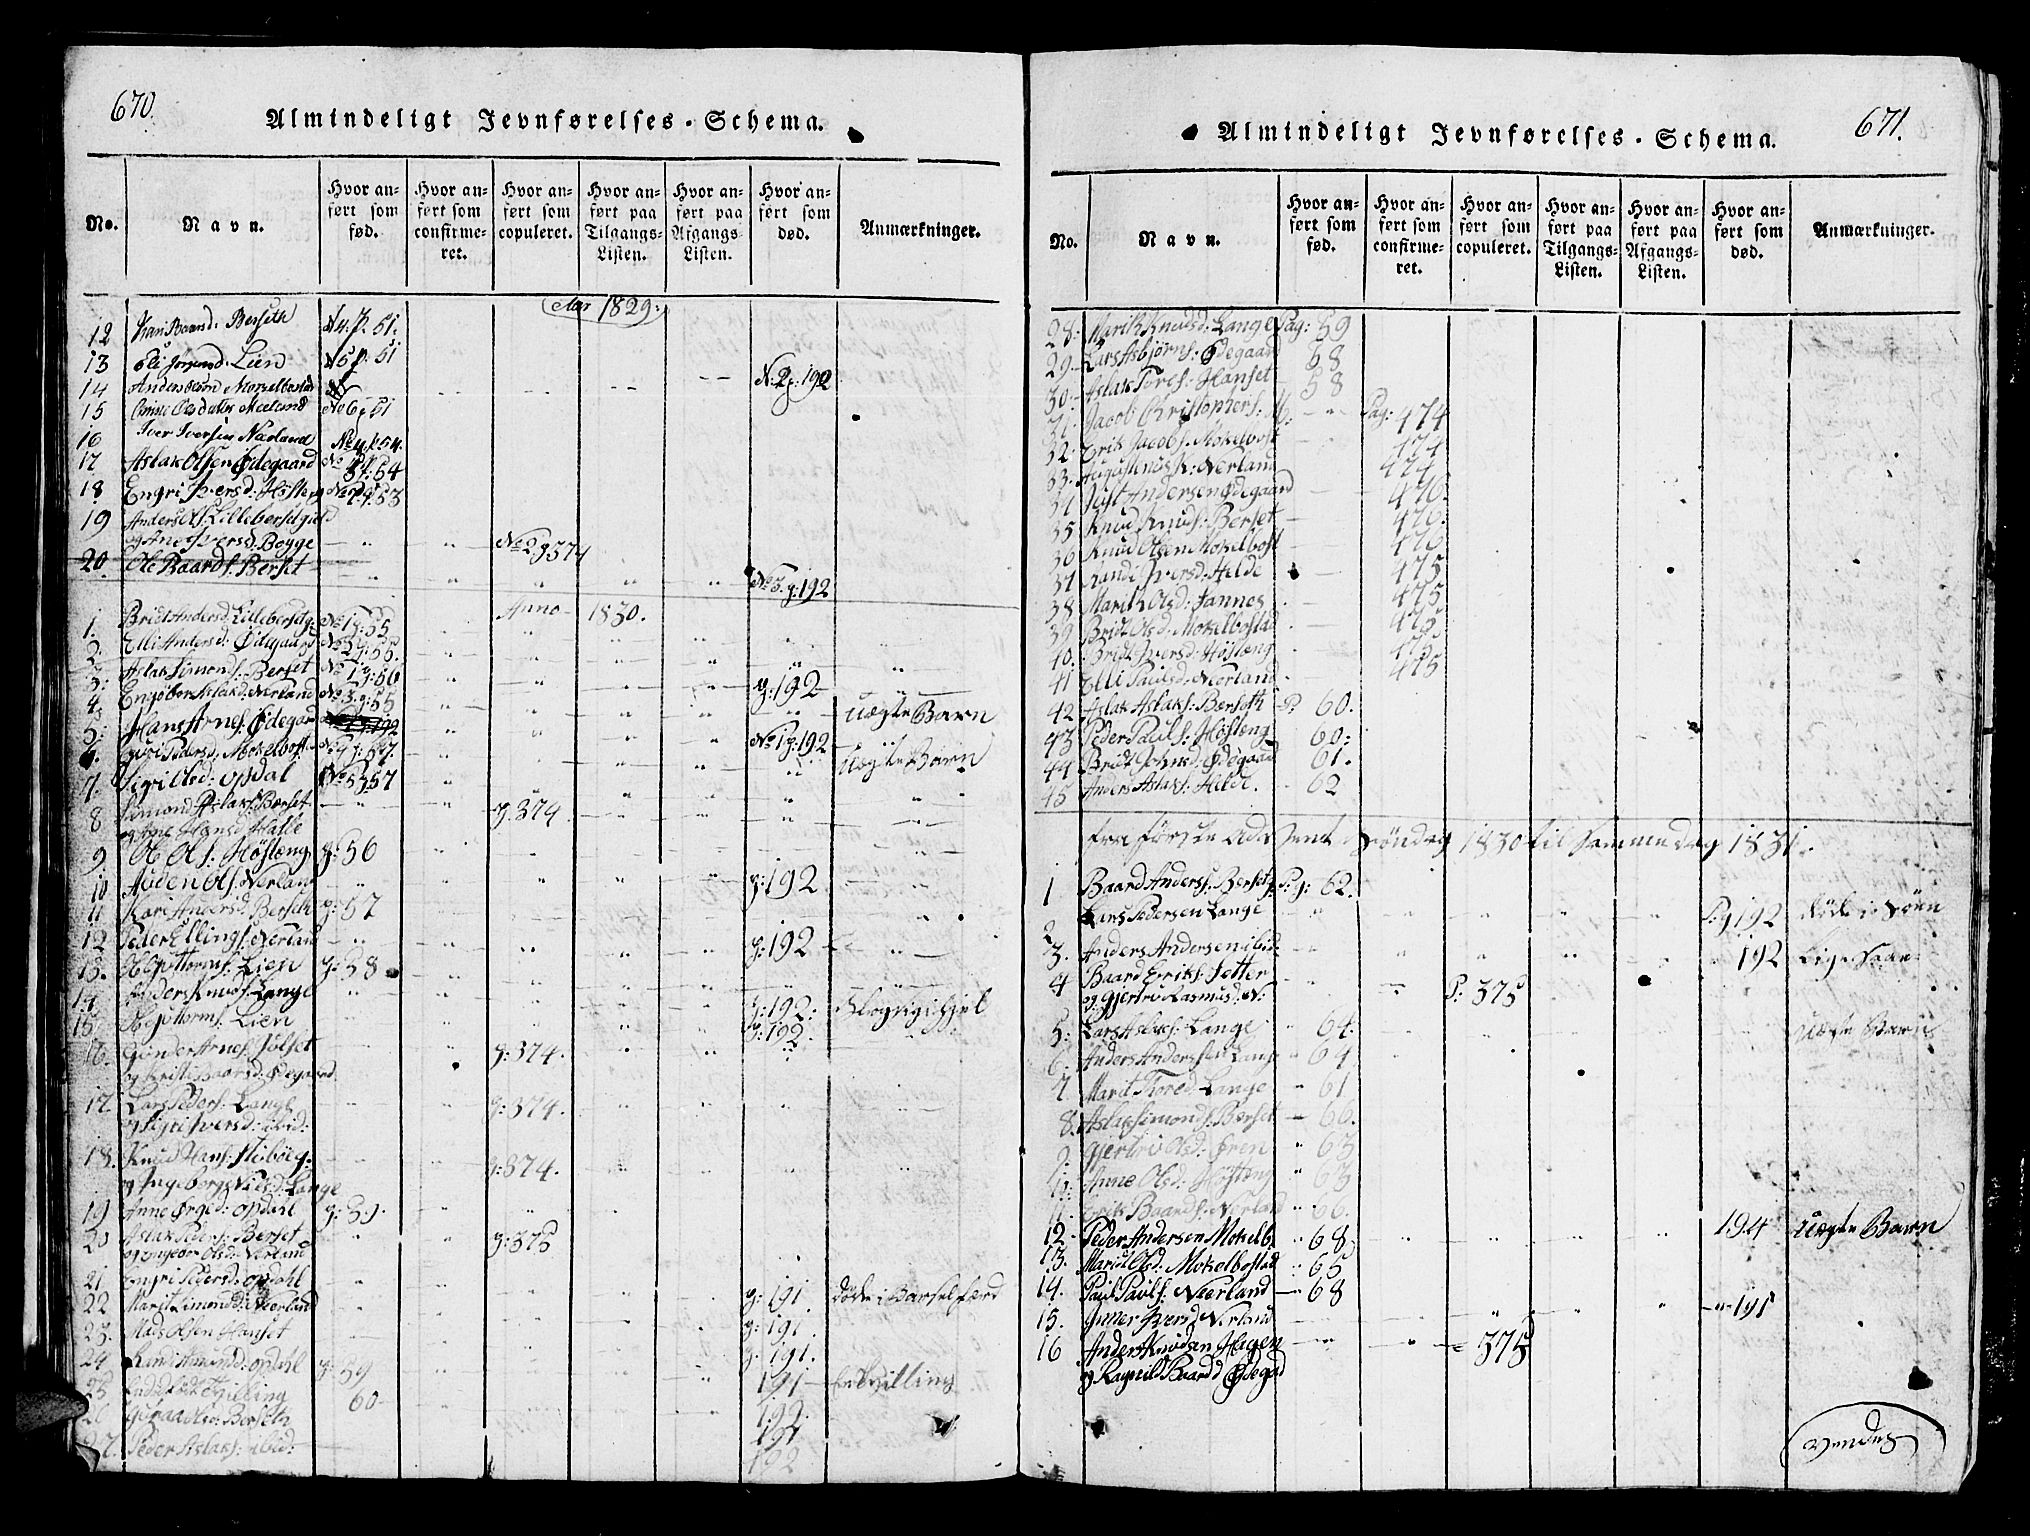 670.
Almindeligt Jevnførelses-Schema.
No.
Navn.
Hvor anført som fød.
Hvor anført som confirmeret.
Hvor anført som copuleret.
Hvor anført paa Tilgangs-Listen.
Hvor anført paa Afgangs-Listen.
Hvor anført som død.
Anmærkninger.
Aar 1829.
12 Kari Baardd: Berseth N4. p. 51.
13 Eli Jørgend: Lien N5 p. 51
14 Anders Mokelbostad N. 2 p: 192
15 Anne Olsdatter Meeland No 6 p 51
16 Iver Iversen Nerland No 4 p 54.
17 Aslak Olsen Ødegaard No p. 54
18 Engri Iversd: Høsteng No p: 53
19 Anders Lillebersetgird
og Ane Iversd: Bogge No 2 p 374
20. Ole Baards: Berset No 3. p: 192
Anno 1830.
1. Bridt Andersd: Lillebersetg: No 1 p: 55
2. Elli Andersd: Ødegaard No 2 p: 55.
3. Aslak Simonds: Berset No 1 p: 56
4. Engebor Aslaksd: Nerland No 3 p: 55 p: 192
5. Hans Arnes: Ødegaard uægte Barn
6. Guri Peders: Mokelbost No 4 p: 57. No 1 p: 192
7. Sigri Olsd: Opdal No 5 p 57 Uægte Barn
8 Simond Aslaks: Berset
og Ane Hansd Halle p. 374.
9 Ol Ols: Høsteng p: 56
10 Auden Ols: Nerland p: 192
11 Kari Andersd: Berseth p: 57
12 Peder Ellings: Nerland p: 192
13. Lien p: 58
14. Anders Knuds: Lange p: 192.
15. Lien p: 192.
16. Gunder Arnes: Solset p: 374.
og Kristi Baardsd: Ødegaard
17. Lars Peders: Lange p: 374.
og Sigri Iversd: ibid:
18. Knud Hans: Stubøe p: 374.
og Ingeborg Nielsd: Lange
19 Anne Opdahl p: 59.
20 Aslak Peders: Berset p: 375
og Engebor Olsd: Nerland
21. Engri Pedersd: Opdahl
22 Marit Simondd: Neerland p: 191. døde i Barselfærd
23. Mads Olsen Hanset p: 191.
24 Randi Amundd: Opdahl p: 59 p: 191.
25 Tvilling 60 191 En Tvilling
26 Berseth 192.
27. Peder Aslaks: ibid: 191
192
671.
Almindeligt Jevnførelses-Schema.
No.
Navn.
Hvor anført som fød.
Hvor anført som confirmeret.
Hvor anført som copuleret.
Hvor anført paa Tilgangs-Listen.
Hvor anført paa Afgangs-Listen.
Hvor anført som død.
Anmærkninger.
28. Marit Knudsd: Lange Pag: 59
29 Lars Asbjørns: Ødegaard 58
30. Aslak Tores: Hanset 58
31. Jacob Christophers: Pag: 474
32. Erik Jacobs: Mokelbost 474
33. Augustinus K: Nerland 474
34 Just Andersen Ødegaard 476.
35 Knud Knuds: Berset 476.
36 Knud Olsen Mokelbost 476
37 Randi Iversd: Helde 475
38 Marit Olsd: Jannes 475
39 Bridt Olsd: Mokelbostad 475
40. Bridt Iversd: Høsteng 475
41 Elli Paulsd: Nerland 475
42 Aslak Aslaks: Berseth P. 60.
43 Peder Pauls: Høsteng 60:
44 Bridt Johnsd: Ødegaard 61.
45 Anders Aslaks: Helde. 62
fra første Advent Søndag 1830 til samme Dag 1831.
1 Baard Anders: Berset P. g: 62.
2 Lars Pedersen Lange P. g 192 døde i Søen
3. Anders Andersen ibid: 192 Ligesaa
4 Baard Eriks: Setter
og Gjertru Rasmusd: N: P. 375
5. Lars Aslaks: Lange 64. Uægte Barn
6. Anders Andersen Lange 64
7 Marit Tored: Lange 61
8. Aslak Simonds: Berset 66.
9. Gjertru Olsd: Øren 63
10. Anne Olsd: Høsteng 63
11. Erik Baards: Nerland 66.
12 Peder Andersen Mokelb. 68. 194 uægte Barn
13. Marit Olsd: Mokelbostad 65
14. Paul Pauls: Neerland 68
15. Iversd Nerland 191
16 Anders Knudsen Hagen 375
og Ragnild Baardd Ødegad
vendes